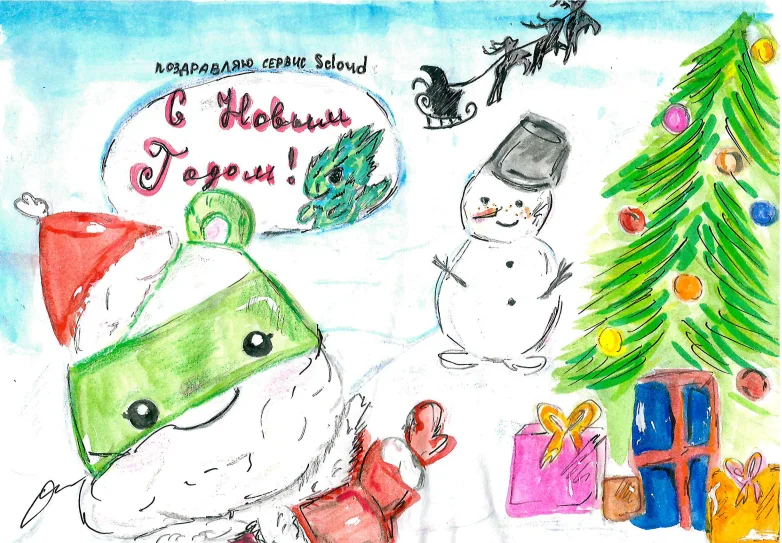 поздравляю сервис Scloud
С Новым
Годом!